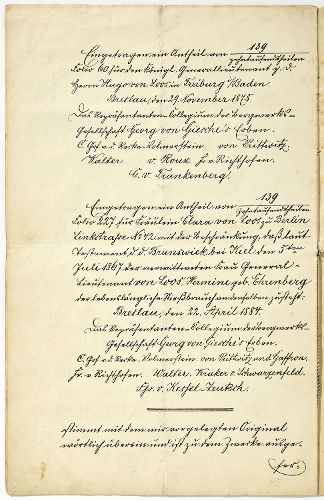 Eingetragen ein Antheil von 139
zehntausendtheilen
Folio 60 für den Königl. Generallieutenant z. D.
Herrn Hugo von Loos in Freiburg i/Baden.
Breslau, den 29. November 1875.
Das Repräsentanten-Collegium der Bergwerks-
Gesellschaft Georg von Giesche's Erben.
C. Gf. v. d. Recke-Volmerstein. von Prittwitz.
Walter. v. Roux. Fr. v. Richthofen.
G. v. Frankenberg.
Eingetragen ein Antheil von 139
zehntausendtheilen
Folio 227 für Fräulein Clara von Loos zu Berlin
Linkstraße No 42 mit der Beschränkung, daß laut
Testament, d. d. Brunswiek, bei Kiel den 5ten
Juli 1867 der verwittweten Frau General-
Lieutenant von Loos, Hermine geb. Ehrenberg
der lebenslängliche Nießbrauch an denselben zusteht.
Breslau, den 22. April 1884.
Das Repräsentanten-Collegium der Bergwerks-
Gesellschaft Georg von Giesche's Erben.
C. Gf. v. d. Recke-Volmerstein. von Prittwitz und Gaffron.
Fr. v. Richthofen. Walter. Kraker v. Schwarzenfeld.
v. Kessel-Zeutsch.
stimmt mit dem mir vorgelegten Original
wörtlich überein und ist zu dem Zwecke ausge-
fer-